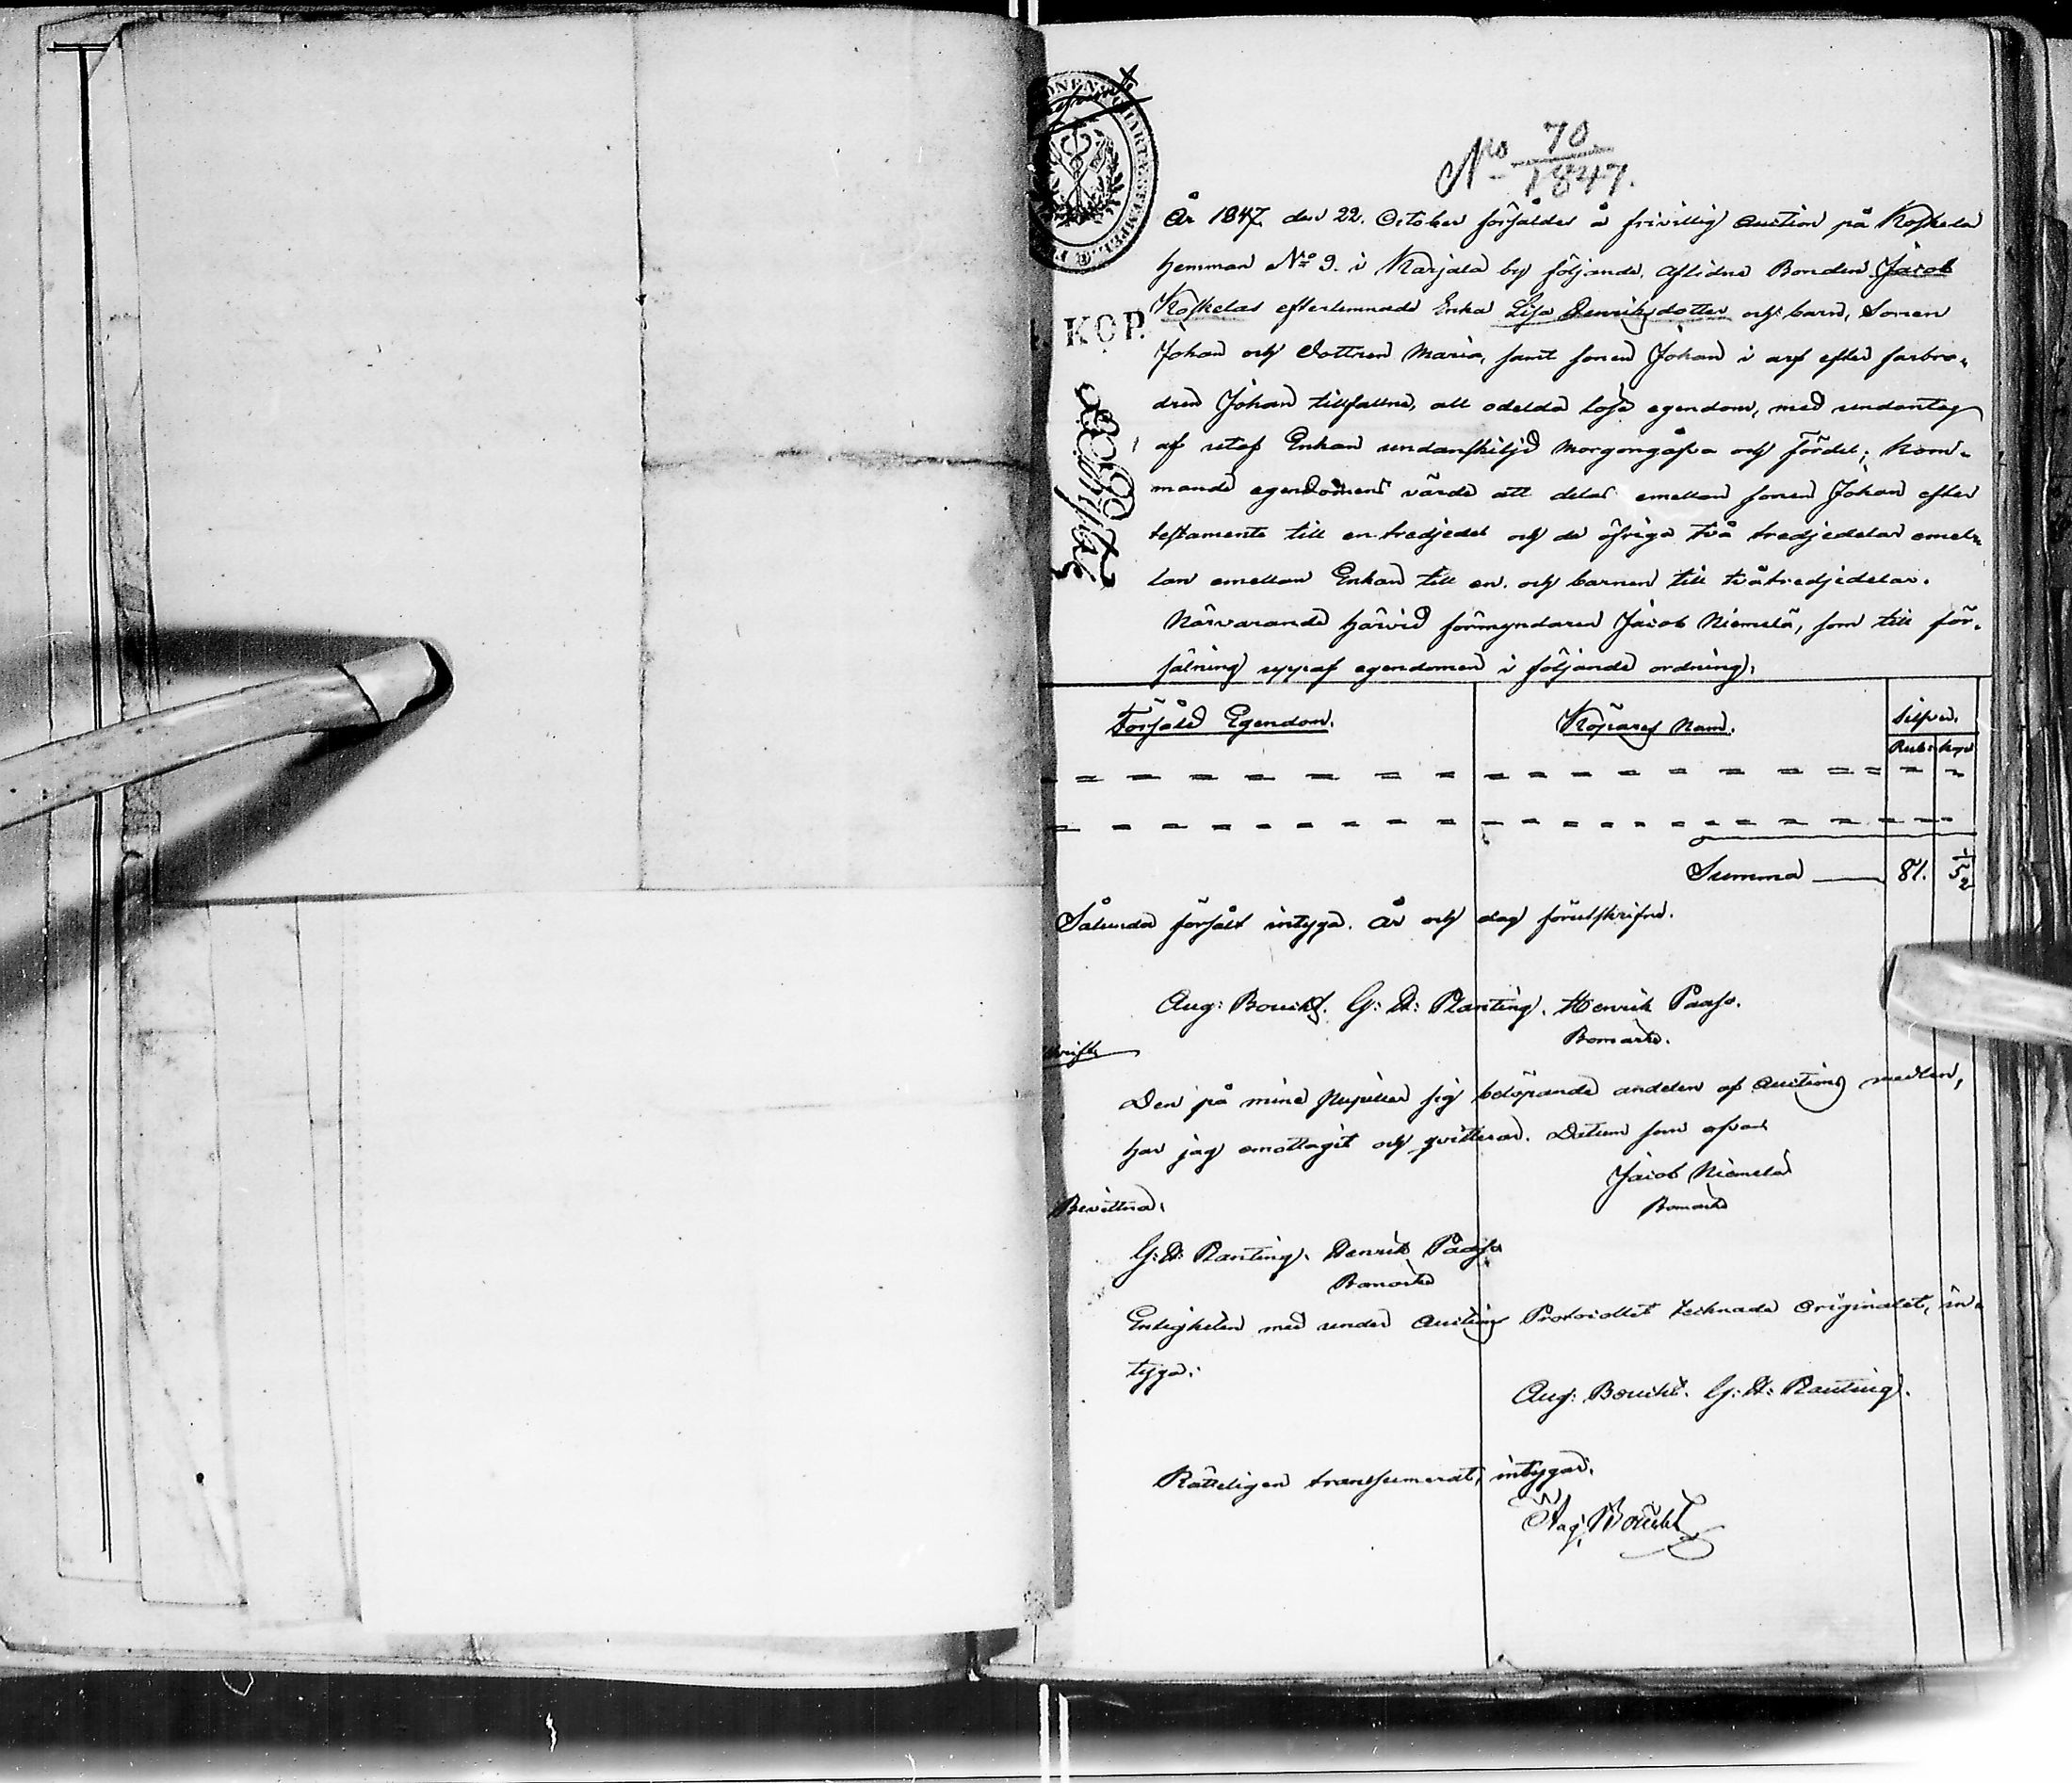 No 70/1847.
År 1847 den 22. October försåldes å frivillig auction på Koskela
hemman No 9. i Karjala by följande, aflidne Bonden Jacob
Koskelas efterlemnade Enka Lisa Henriksdotter och barn, Sonen
KOP.
Johan och dottren Maria, samt sonen Johan i arf efter farbro-
dren Johan tillfallne, all odelda lösa egendom, med undantag
af utaf Enkan undanskiljd morgongåfva och fördel; kom-
mande egendomens värde att delas emellan sonen Johan efter
testamente till en tredjedel och de öfriga två tredjedelar emel-
lan emellan Enkan till en och barnen till tvåtredjedelar.
Närvarande härvid förmyndaren Jacob Niemelä, som till för-
säljning uppgaf egendomen i följande ordning;
Försåld Egendom. Köpares Namn. Silfver.
Rub. Kop
Summa 81. 5 1/2
Sålunda försålt intyga. År och dag förutskrifne.
Aug: Boucht. G: H: Planting. Henrik Paaso.
Bomärke.
Den på mine Pupiller sig belöpande andelen af Auctions medlen,
har jag emottagit och qvitterar. Datum som ofvan
Jacob Niemelä
Bomärke
Bevittna;
G: H: Planting. Henrik Paaso
Bomärke
Enligheten med under Auctions Protocollet tecknade Originalet, in-
tyga:
Aug: Boucht. G: H: Planting.
Rätteligen transsumerat, intygar.
Aug. Boucht